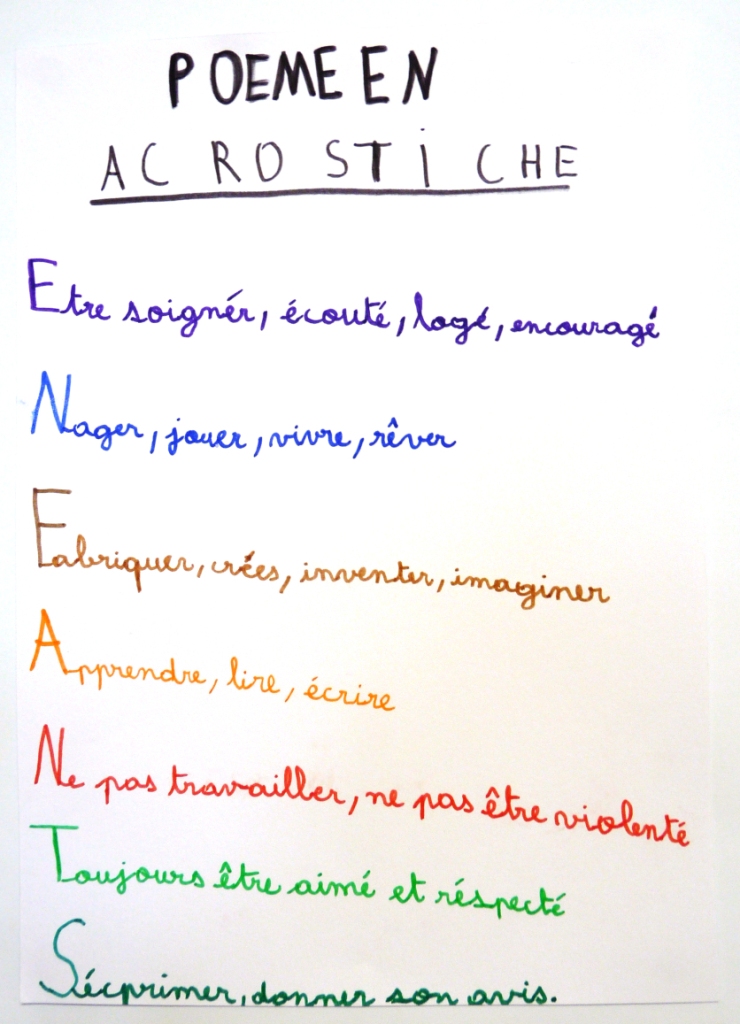 POEME EN
ACROSTICHE
Etre soignér, écouté, logé, encouragé
Nager, jouer, vivre, rêver
Fabriquer, crées, inventer, imaginer
Apprendre, lire, écrire
Ne pas travailler, ne pas être violenté
Toujours être aimé et réspecté
Sécprimer, donner son avis.